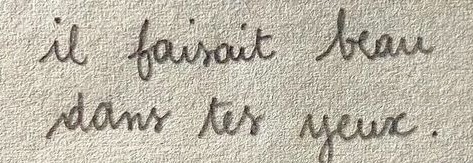 il faisait beau
dans tes yeux.